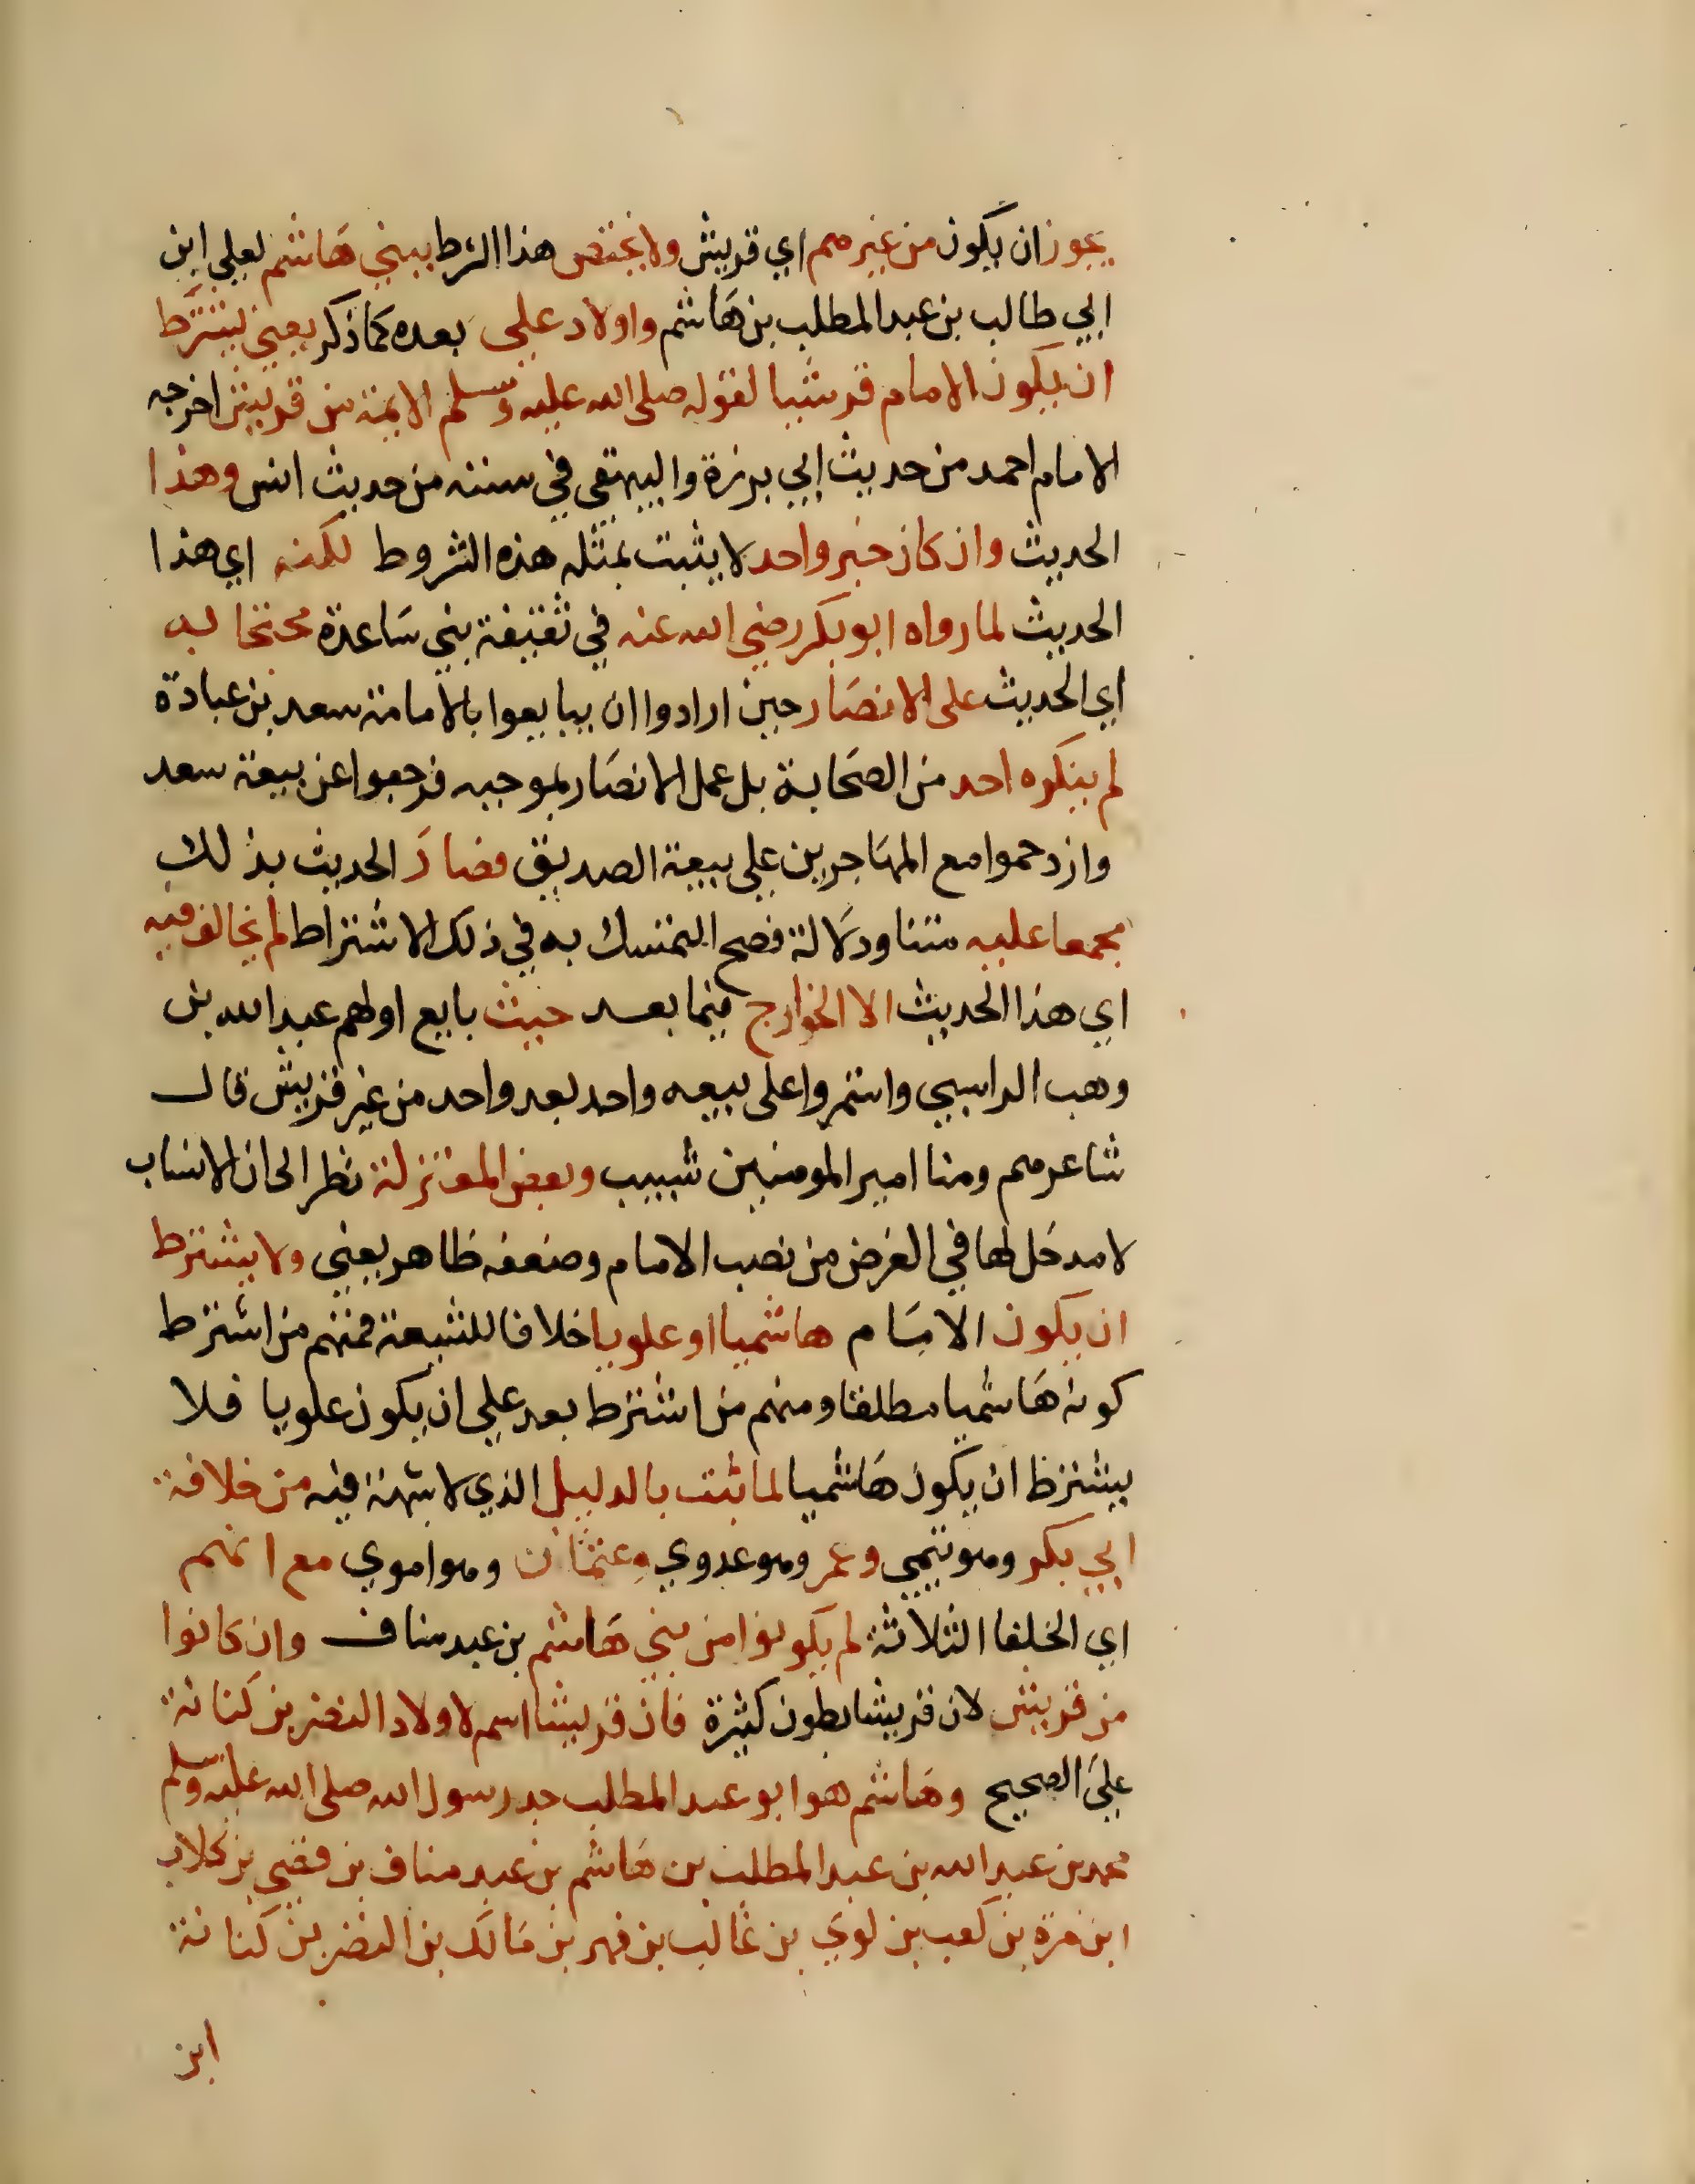 يجوز ان يكون من غيرهم اي قريش ولا يختص هذا الشرط ببني هاشم لعلي ابن
ابي طالب بن عبد المطلب بن هاشم واولاد علي بعده كما ذكر يعني يشترط
ان يكون الامام قرشيا لقوله صلى الله عليه وسلم الايمة من قريش اخرجه
الامام احمد من حديث ابي برزة والبيهقي في سننه من حديث انس وهذا
الحديث وان كان خبر واحد لا يثبت بمثله هذه الشروط لكنه اي هذا
الحديث لما رواه ابو بكر رضي الله عنه في ثقيفة بني ساعدة محتجا به
اي الحديث على الانصار حين ارادوا ان يبايعوا بالامامة سعد بن عبادة
لم ينكره احد من الصحابة بل عمل الانصار بموجبه فرجعوا عن بيعة سعد
وازدحموا مع المهاجرين على بيعة الصديق فصار الحديث بذلك
مجمعا عليه متنا ودلالة فصح التمسك به في ذلك الاشتراط لم يخالف فيه
اي هذا الحديث الا الخوارج فيما بعد حيث بايع اولهم عبد الله بن
وهب الراسبي واستمروا على بيعه واحد بعد واحد من غير قريش قال
شاعرهم ومنا امير المومنين شبيب وبعض المعتزلة نظر الى ان الانساب
لا مدخل لها في الغرض من نصب الامام وضعفه ظاهر يعني ولا يشترط
ان يكون الامام هاشميا او علويا خلافا للشيعة فمنهم من اشترط
كونه هاشميا مطلقا ومنهم من اشترط بعد علي ان يكون علويا فلا
يشترط ان يكون هاشميا لما ثبت بالدليل الذي لا شبهة فيه من خلافة
ابي بكر وهو تيمي وعمر وهو عدوي وعثمان وهو اموي مع انهم
اي الخلفا الثلاثة لم يكونوا من بني هاشم بن عبد مناف وان كانوا
من قريش لان قريشا بطون كثيرة فان قريشا اسم لاولاد النضر بن كنانة
على الصحيح وهاشم هو ابو عبد المطلب جد رسول الله صلى الله عليه وسلم
محمد بن عبد الله بن عبد المطلب بن هاشم بن عبد مناف بن قصي بن كلاب
ابن مرة بن كعب بن لوي بن غالب بن فهر بن مالك بن النضر بن كنانة
ابن